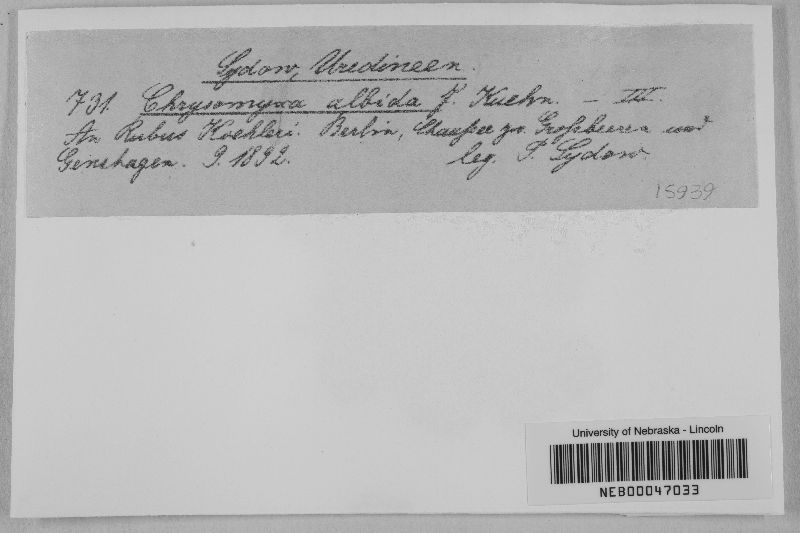 Sydow, Uredineen.
731. Chrysomyxa albida J. Kuehn. – III.
An Rubus Koehleri. Berlin, Chaussee zw. Großbeeren und
Genshagen. 9. 1892. leg. P. Sydow.
15939
University of Nebraska - Lincoln
NEB00047033